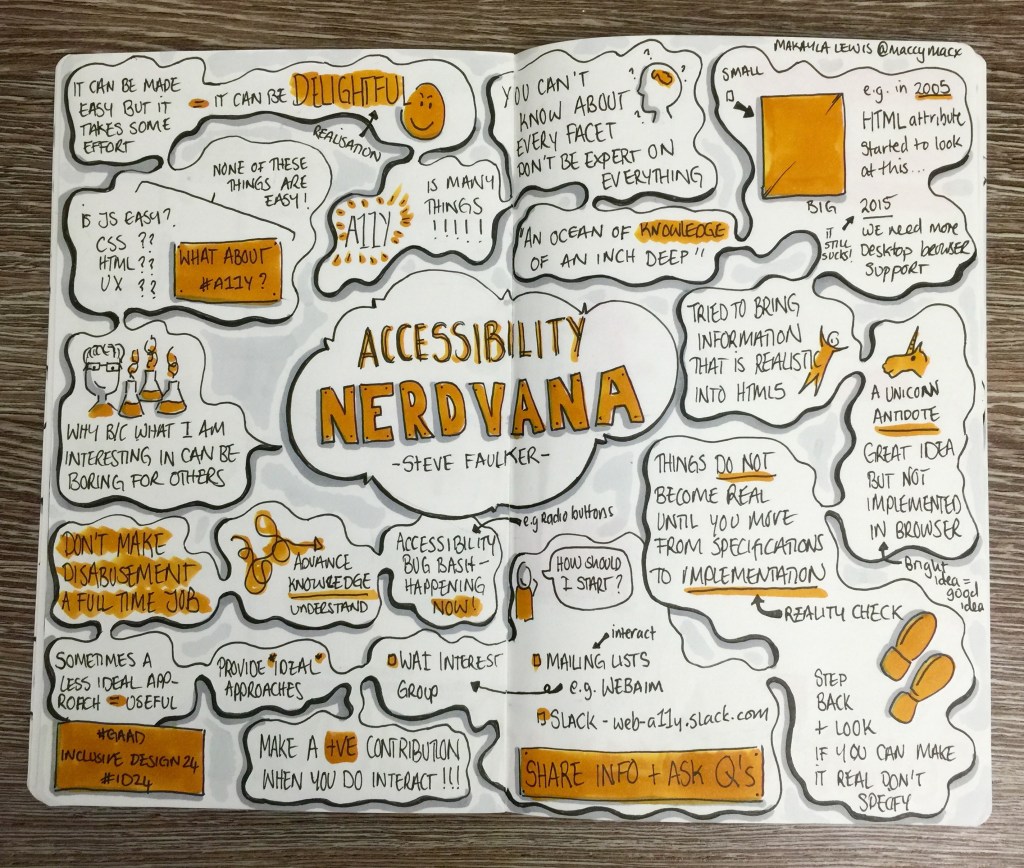 MAKAYLA LEWIS @maccymacx
IT CAN BE MADE
EASY BUT IT
TAKES SOME
EFFORT
= IT CAN BE DELIGHTFUL
REALISATION
NONE OF THESE
THINGS ARE
EASY!
IS JS EASY?
CSS ??
HTML ??
UX ??
WHAT ABOUT
#A11Y?
A11Y
IS MANY
THINGS
!!!!!
YOU CAN'T
KNOW ABOUT
EVERY FACET
DON'T BE EXPERT ON
EVERYTHING
? ? ? ?
"AN OCEAN OF KNOWLEDGE
OF AN INCH DEEP"
SMALL
BIG
e.g. in 2005
HTML attribute
Started to look
at this...
2015
WE need more
Desktop browser
Support
IT
STILL
SUCKS!
ACCESSIBILITY
NERDVANA
-STEVE FAULKER-
WHY B/C WHAT I AM
INTERESTING IN CAN BE
BORING FOR OTHERS
TRIED TO BRING
INFORMATION
THAT IS REALISTIC
INTO HTML5
A UNICORN
ANTIDOTE
GREAT IDEA
BUT NOT
IMPLEMENTED
IN BROWSER
Bright
idea =
good
idea
THINGS DO NOT
BECOME REAL
UNTIL YOU MOVE
FROM SPECIFICATIONS
TO IMPLEMENTATION
REALITY CHECK
DON'T MAKE
DISABUSEMENT
A FULL TIME JOB
ADVANCE
KNOWLEDGE
UNDERSTAND
e.g Radio buttons
ACCESSIBILITY
BUG BASH-
HAPPENING
NOW!
HOW SHOULD
I START?
SOMETIMES A
LESS IDEAL APP-
ROACH = USEFUL
PROVIDE "IDEAL"
APPROACHES
WAI INTEREST
GROUP
interact
MAILING LISTS
e.g. WEBAIM
SLACK - web-a11y.slack.com
SHARE INFO + ASK Q's
#GAAD
INCLUSIVE DESIGN 24
#ID24
MAKE A +VE CONTRIBUTION
WHEN YOU DO INTERACT!!!
STEP
BACK
+ LOOK
IF YOU CAN MAKE
IT REAL DON'T
SPECIFY